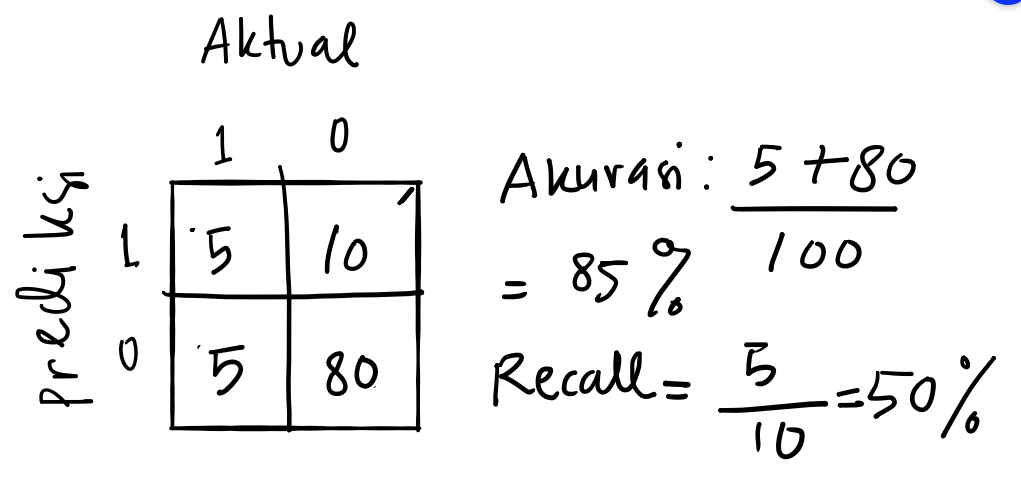 Aktual
1 0
Prediksi
1 5 10
0 5 80
Akurasi: 5 + 80
100
= 85%
Recall = 5
10
= 50%